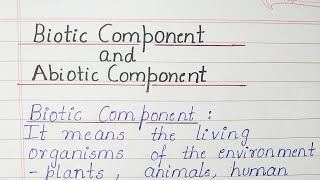 Biotic Component
and
Abiotic Component
Biotic Component :
It means the living
organisms of the environment
- plants, animals, human